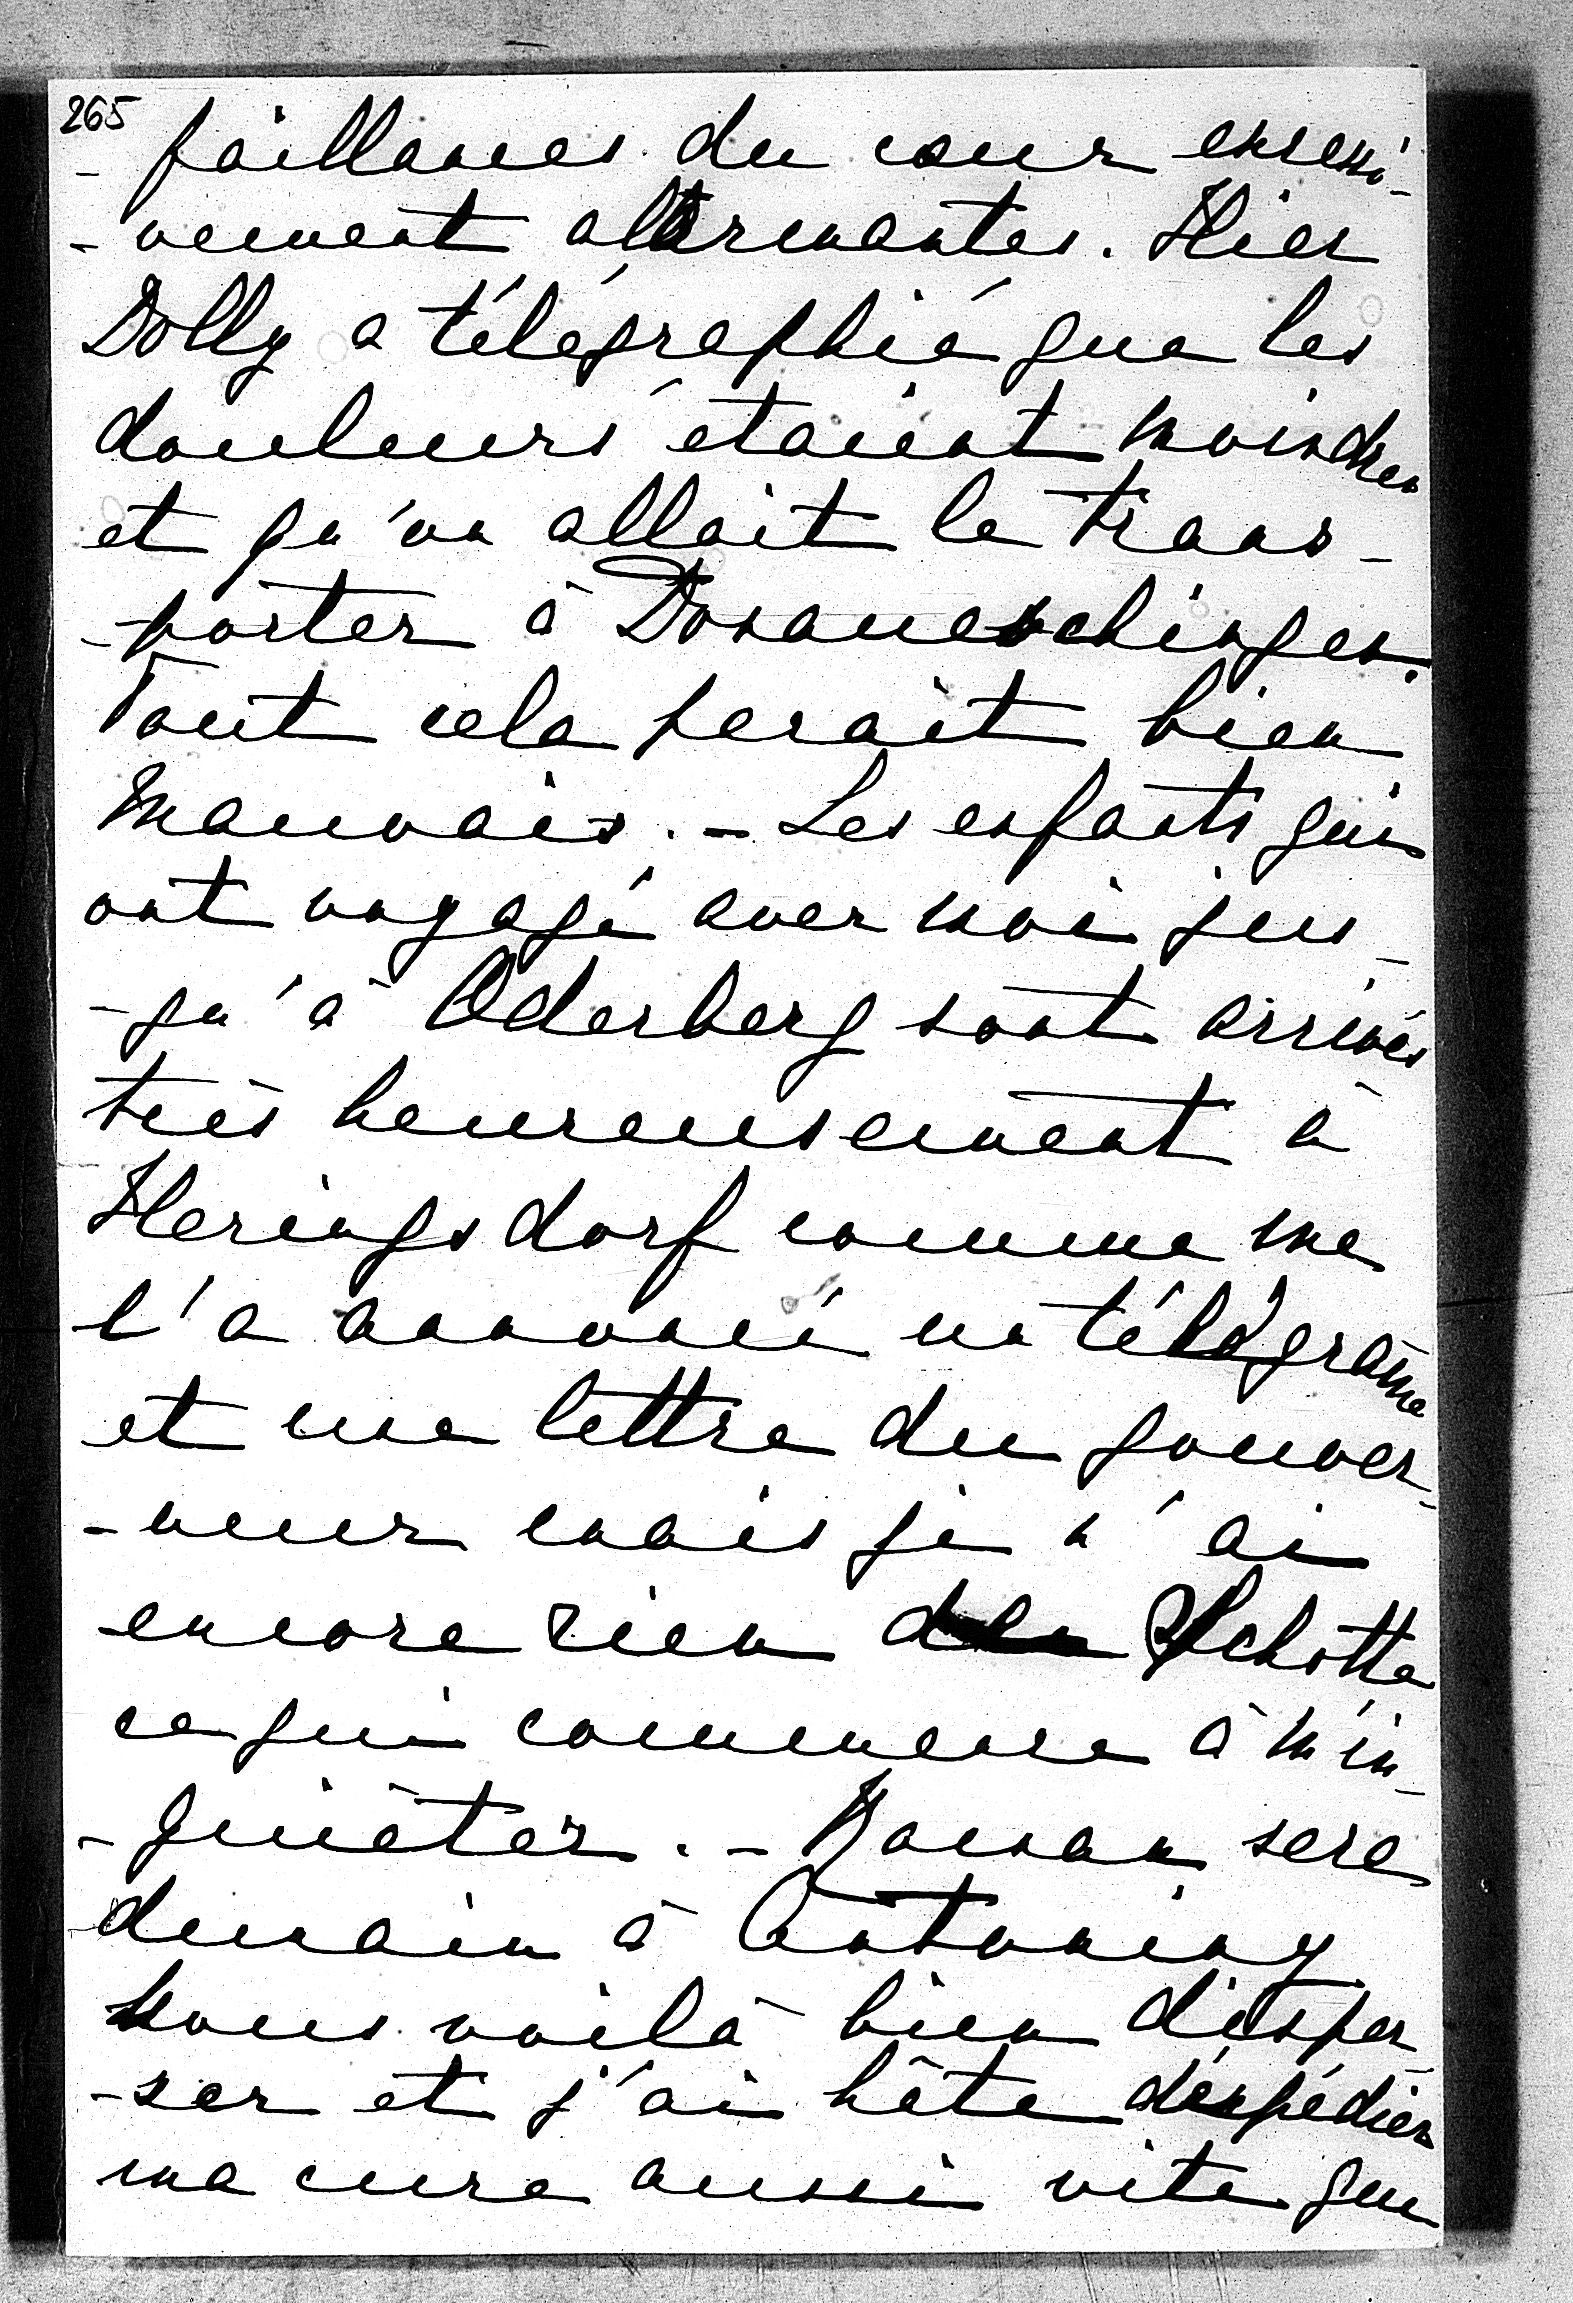 265
- faillances du cœur excessi-
- vement allarmantes. Hier
Dolly a télégraphié que les
douleurs étaient moindres
et qu'on allait le trans-
- porter à Donaueschingen.
Tout cela serait bien
mauvais. - Les enfants qui
ont voyagé avec moi jus-
- qu'à Oderberg sont arrivés
très heureusement à
Heringsdorf comme me
l'a annoncé un télégramme
et une lettre du gouver-
- neur mais je n'ai
encore rien de Schotte
ce qui commence à m'in-
- quiéter. - Roman sera
demain à Antoniny
nous voilà bien disper-
- ser et j'ai hâte d'expédier
ma cure aussi vite que